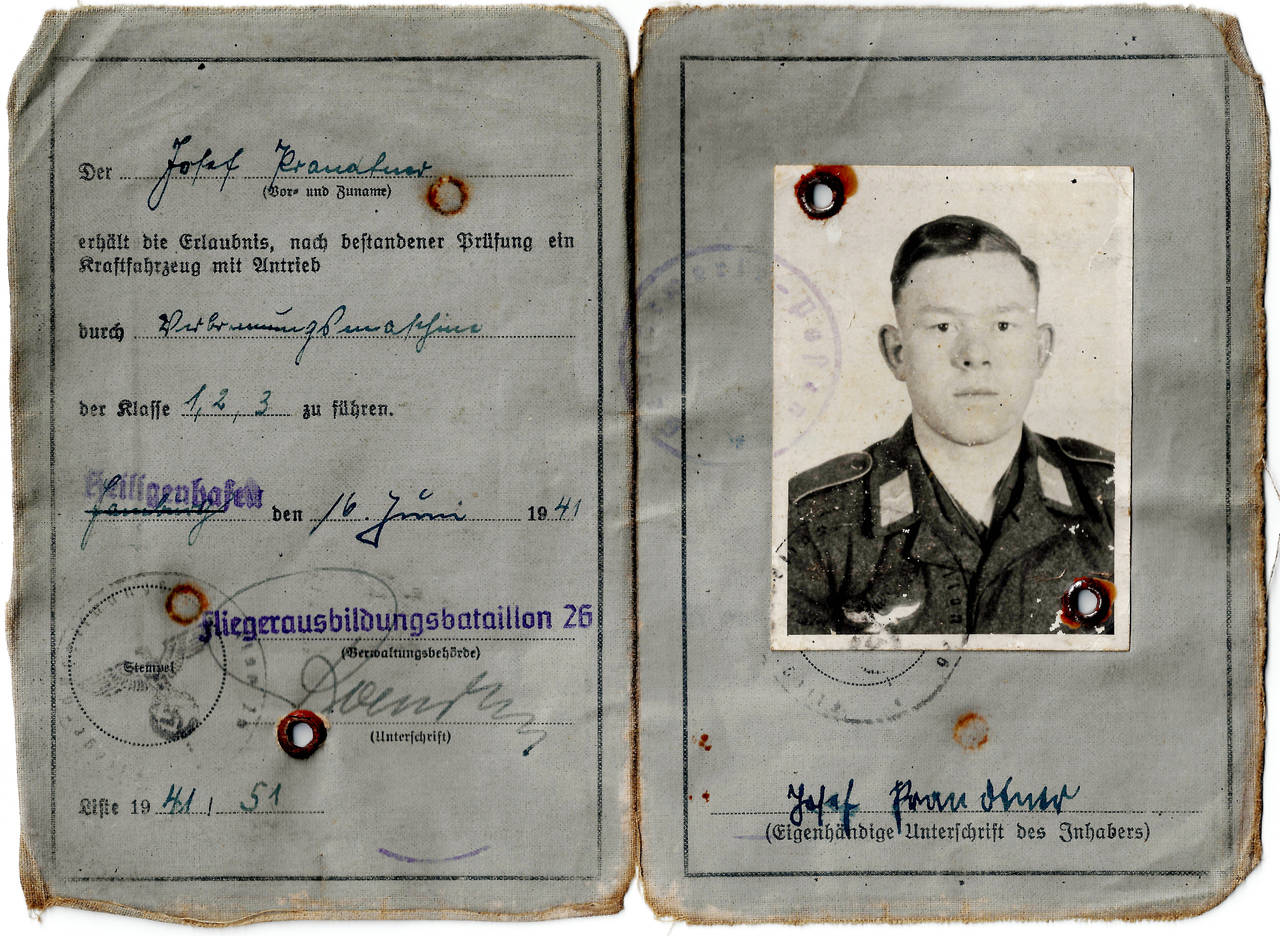 Der Josef Prandtner
(Vor- und Zuname)
erhält die Erlaubnis, nach bestandener Prüfung ein
Kraftfahrzeug mit Antrieb
durch Verbrennungsmaschine
der Klasse 1, 2, 3 zu führen.
Heiligenhafen
Hamburg den 16. Juni 1941
Fliegerausbildungsbataillon 26
(Verwaltungsbehörde)
Stempel
(Unterschrift)
Liste 1941 / 51
Josef Prandtner
(Eigenhändige Unterschrift des Inhabers)